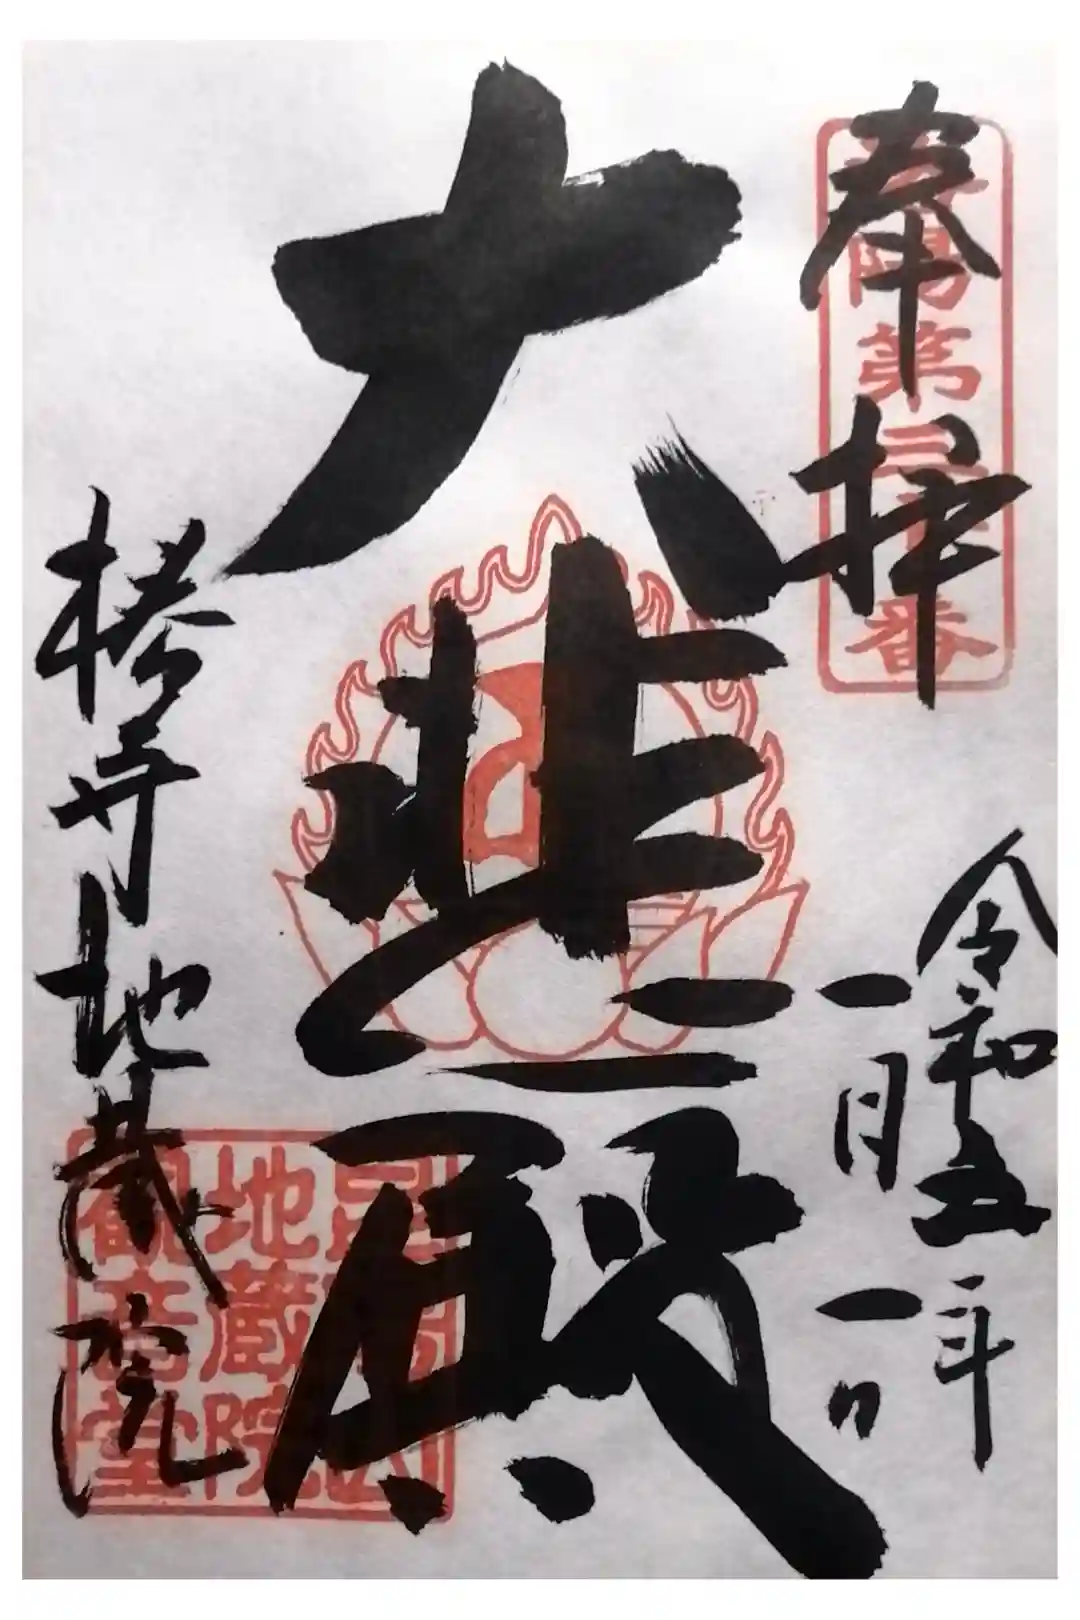 奉拝
洛陽第三十番
令和五年
一月一日
大悲殿
椿寺地蔵院
地蔵院
觀音堂